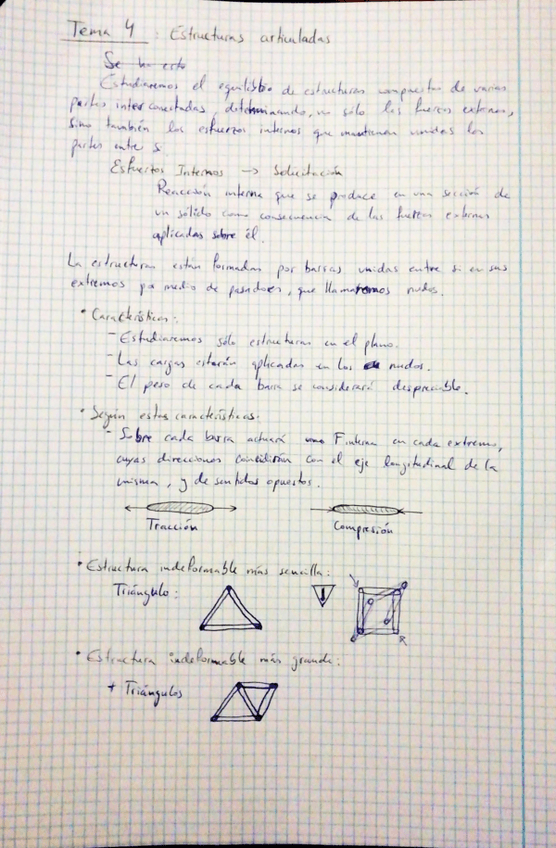 Tema 4 : Estructuras articuladas
Se ha esto
Estudiaremos el equilibrio de estructuras compuestas de varias
partes interconectadas, determinando, no sólo las fuerzas externas,
sino también los esfuerzos internos que mantienen unidas las
partes entre sí
Esfuerzos Internos → Solicitación
Reacción interna que se produce en una sección de
un sólido como consecuencia de las fuerzas externas
aplicadas sobre él.
La estructuras están formadas por barras unidas entre si en sus
extremos por medio de pasadores, que llamaremos nudos.
• Características:
- Estudiaremos sólo estructuras en el plano.
- Las cargas estarán aplicadas en los nudos.
- El peso de cada barra se considerará despreciable.
• Según estas características:
- Sobre cada barra actuará una F interna en cada extremo,
cuyas direcciones coincidirán con el eje longitudinal de la
misma, y de sentidos opuestos.
Tracción
Compresión
• Estructura indeformable más sencilla:
Triángulo:
!
• Estructura indeformable más grande:
+ Triángulos